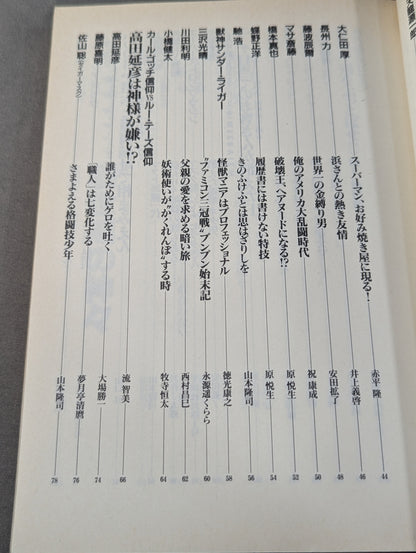 大仁田 厚 スーパーマン、お好み焼き屋に現る! 赤平 隆 44
長州 力 浜さんとの熱き友情 井上義啓 46
藤波辰爾 世界一の金縛り男 安田拡了 48
マサ斎藤 俺のアメリカ大乱闘時代 祝 康成 50
橋本真也 破壊王、ヘアヌードになる!? 原 悦生 52
蝶野正洋 履歴書には書けない特技 原 悦生 54
馳 浩 きのふけふとは思はざりしを 山本隆司 56
獣神サンダー・ライガー 怪獣マニアはプロフェッショナル 徳光康之 58
三沢光晴 “ファミコン三冠戦”ブンブン始末記 永源遥くらら 60
川田利明 父親の愛を求める暗い旅 西村昌巳 62
小橋健太 妖術使いが“かくれんぼ”する時 牧寺恒太 64
カール・ゴッチ信仰VSルー・テーズ信仰
高田延彦は神様が嫌い!? 流 智美 66
高田延彦 誰がためにゲロを吐く 大場勝一 74
藤原喜明 「職人」は七変化する 夢月亭清麿 76
佐山 聡(タイガーマスク) さまよえる格闘技少年 山本隆司 78